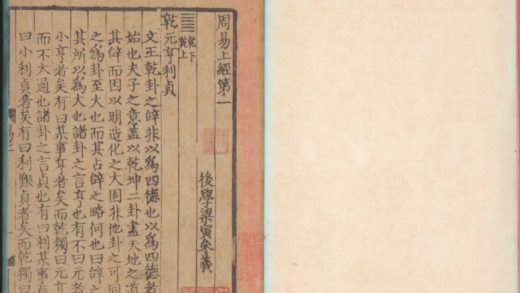 周易上經第一
後學梁寅參義
乾下
乾上
乾元亨利貞
文王乾卦之辭非以爲四德也以爲四德者
始也夫子之意蓋以乾坤二卦盡天地之道
其辭而因以明造化之大固非他卦之可同
之爲卦至大也而其占辭之略何也曰辭之
其所以爲大也諸卦之言亨也有不曰元者
小亨者矣有曰某事亨者矣而乾獨曰元亨
而不大通也諸卦之言貞也有曰利某事貞
曰小利貞者矣有曰利艱貞者矣而乾獨曰